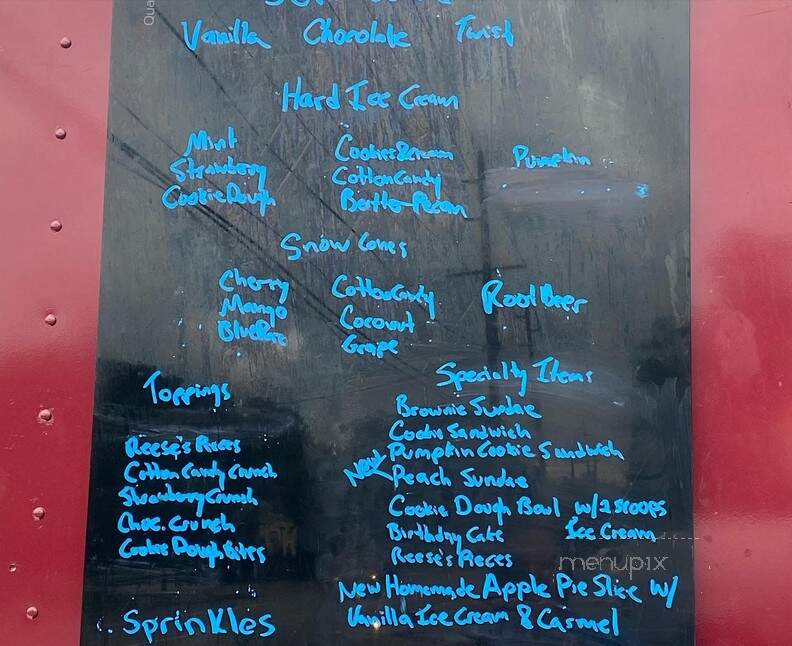 Vanilla Chocolate Twist
Hard Ice Cream
Mint Cookies&cream Pumpkin
Strawberry CottonCandy
Cookie Dough Butter Pecan
Snow Cones
Cherry CottonCandy Root Beer
Mango Coconut
Blue Razz Grape
Toppings
Reese's Pieces
Cotton Candy Crunch
Strawberry Crunch
Choc. Crunch
Cookie Dough Bites
Sprinkles
Specialty Items
Brownie Sundae
Cookie Sandwich
Pumpkin Cookie Sandwich
New Peach Sundae
Cookie Dough Bowl w/2 scoops
Birthday Cake Ice Cream
Reese's Pieces
New Homemade Apple Pie Slice w/
Vanilla Ice Cream & Carmel
menupix